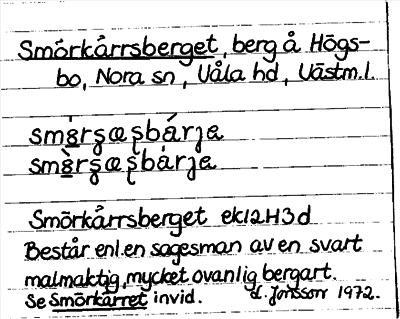 Smörkärrsberget, berg å Högs-
bo, Nora sn, Våla hd, Västm.l.
Smörkärrsberget ek12H3d
Består enl. en sagesman av en svart
malmaktig, mycket ovanlig bergart.
Se Smörkärret invid. d. Jonsson 1972.